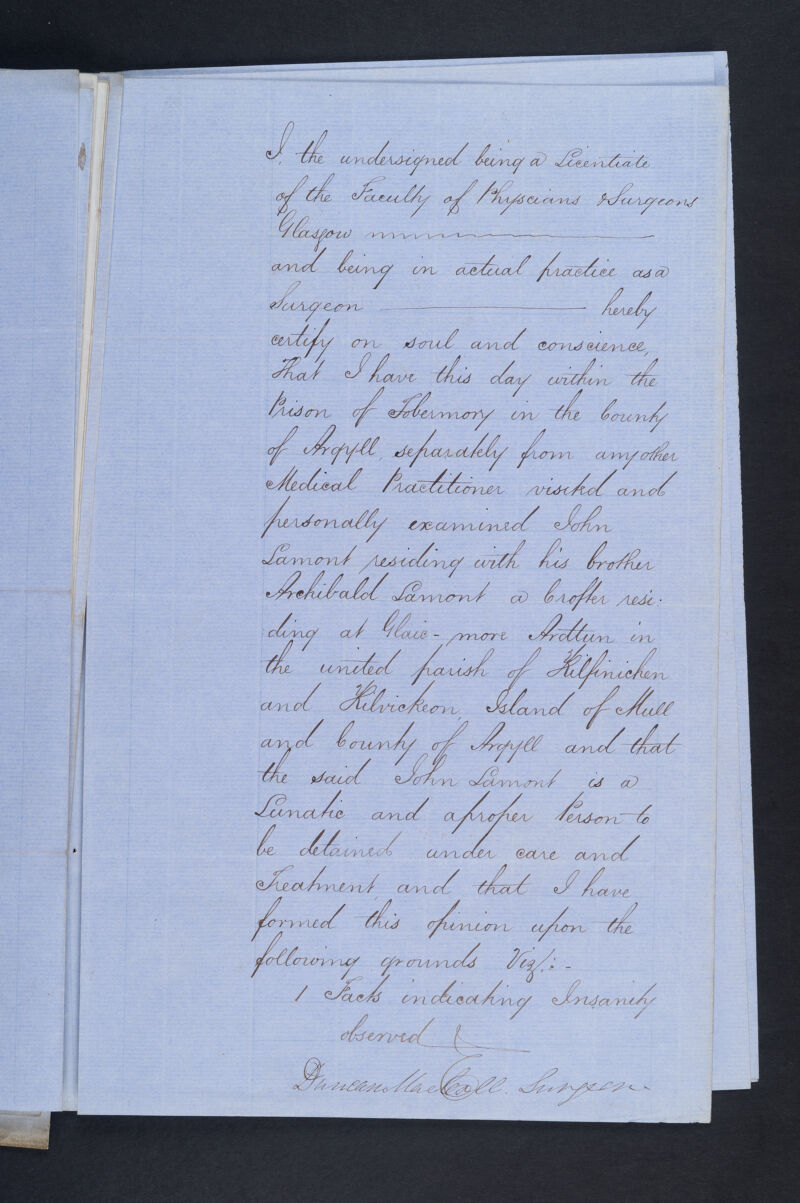 I, the undersigned being a Licentiate
of the Faculty of Physcians & Surgeons
Glasgow
and being in actual practice as a
Surgeon ——— hereby
certify on soul and conscience,
That I have this day within the
Prison of Tobermory in the County
of Argyll, separately from any other
Medical Practitioner visited and
personally examined John
Lamont residing with his brother
Archibald Lamont a Crofter resi-
ding at Glaic-more Ardtun in
the united parish of Kilfinichen
and Kilvickeon, Island of Mull
and County of Argyll and that
the said John Lamont is a
Lunatic and a proper Person to
be detained under care and
Treatment and that I have
formed this opinion upon the
following grounds Viz/:-
1 Facts indicating Insanity
observed
Duncan MacCall. Surgeon.